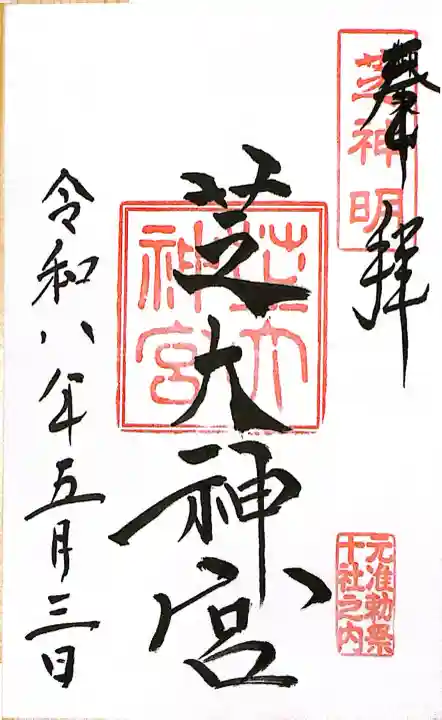 奉拝
芝神明
芝大神宮
芝大神宮
元准勅祭
十社之内
令和八年五月三日